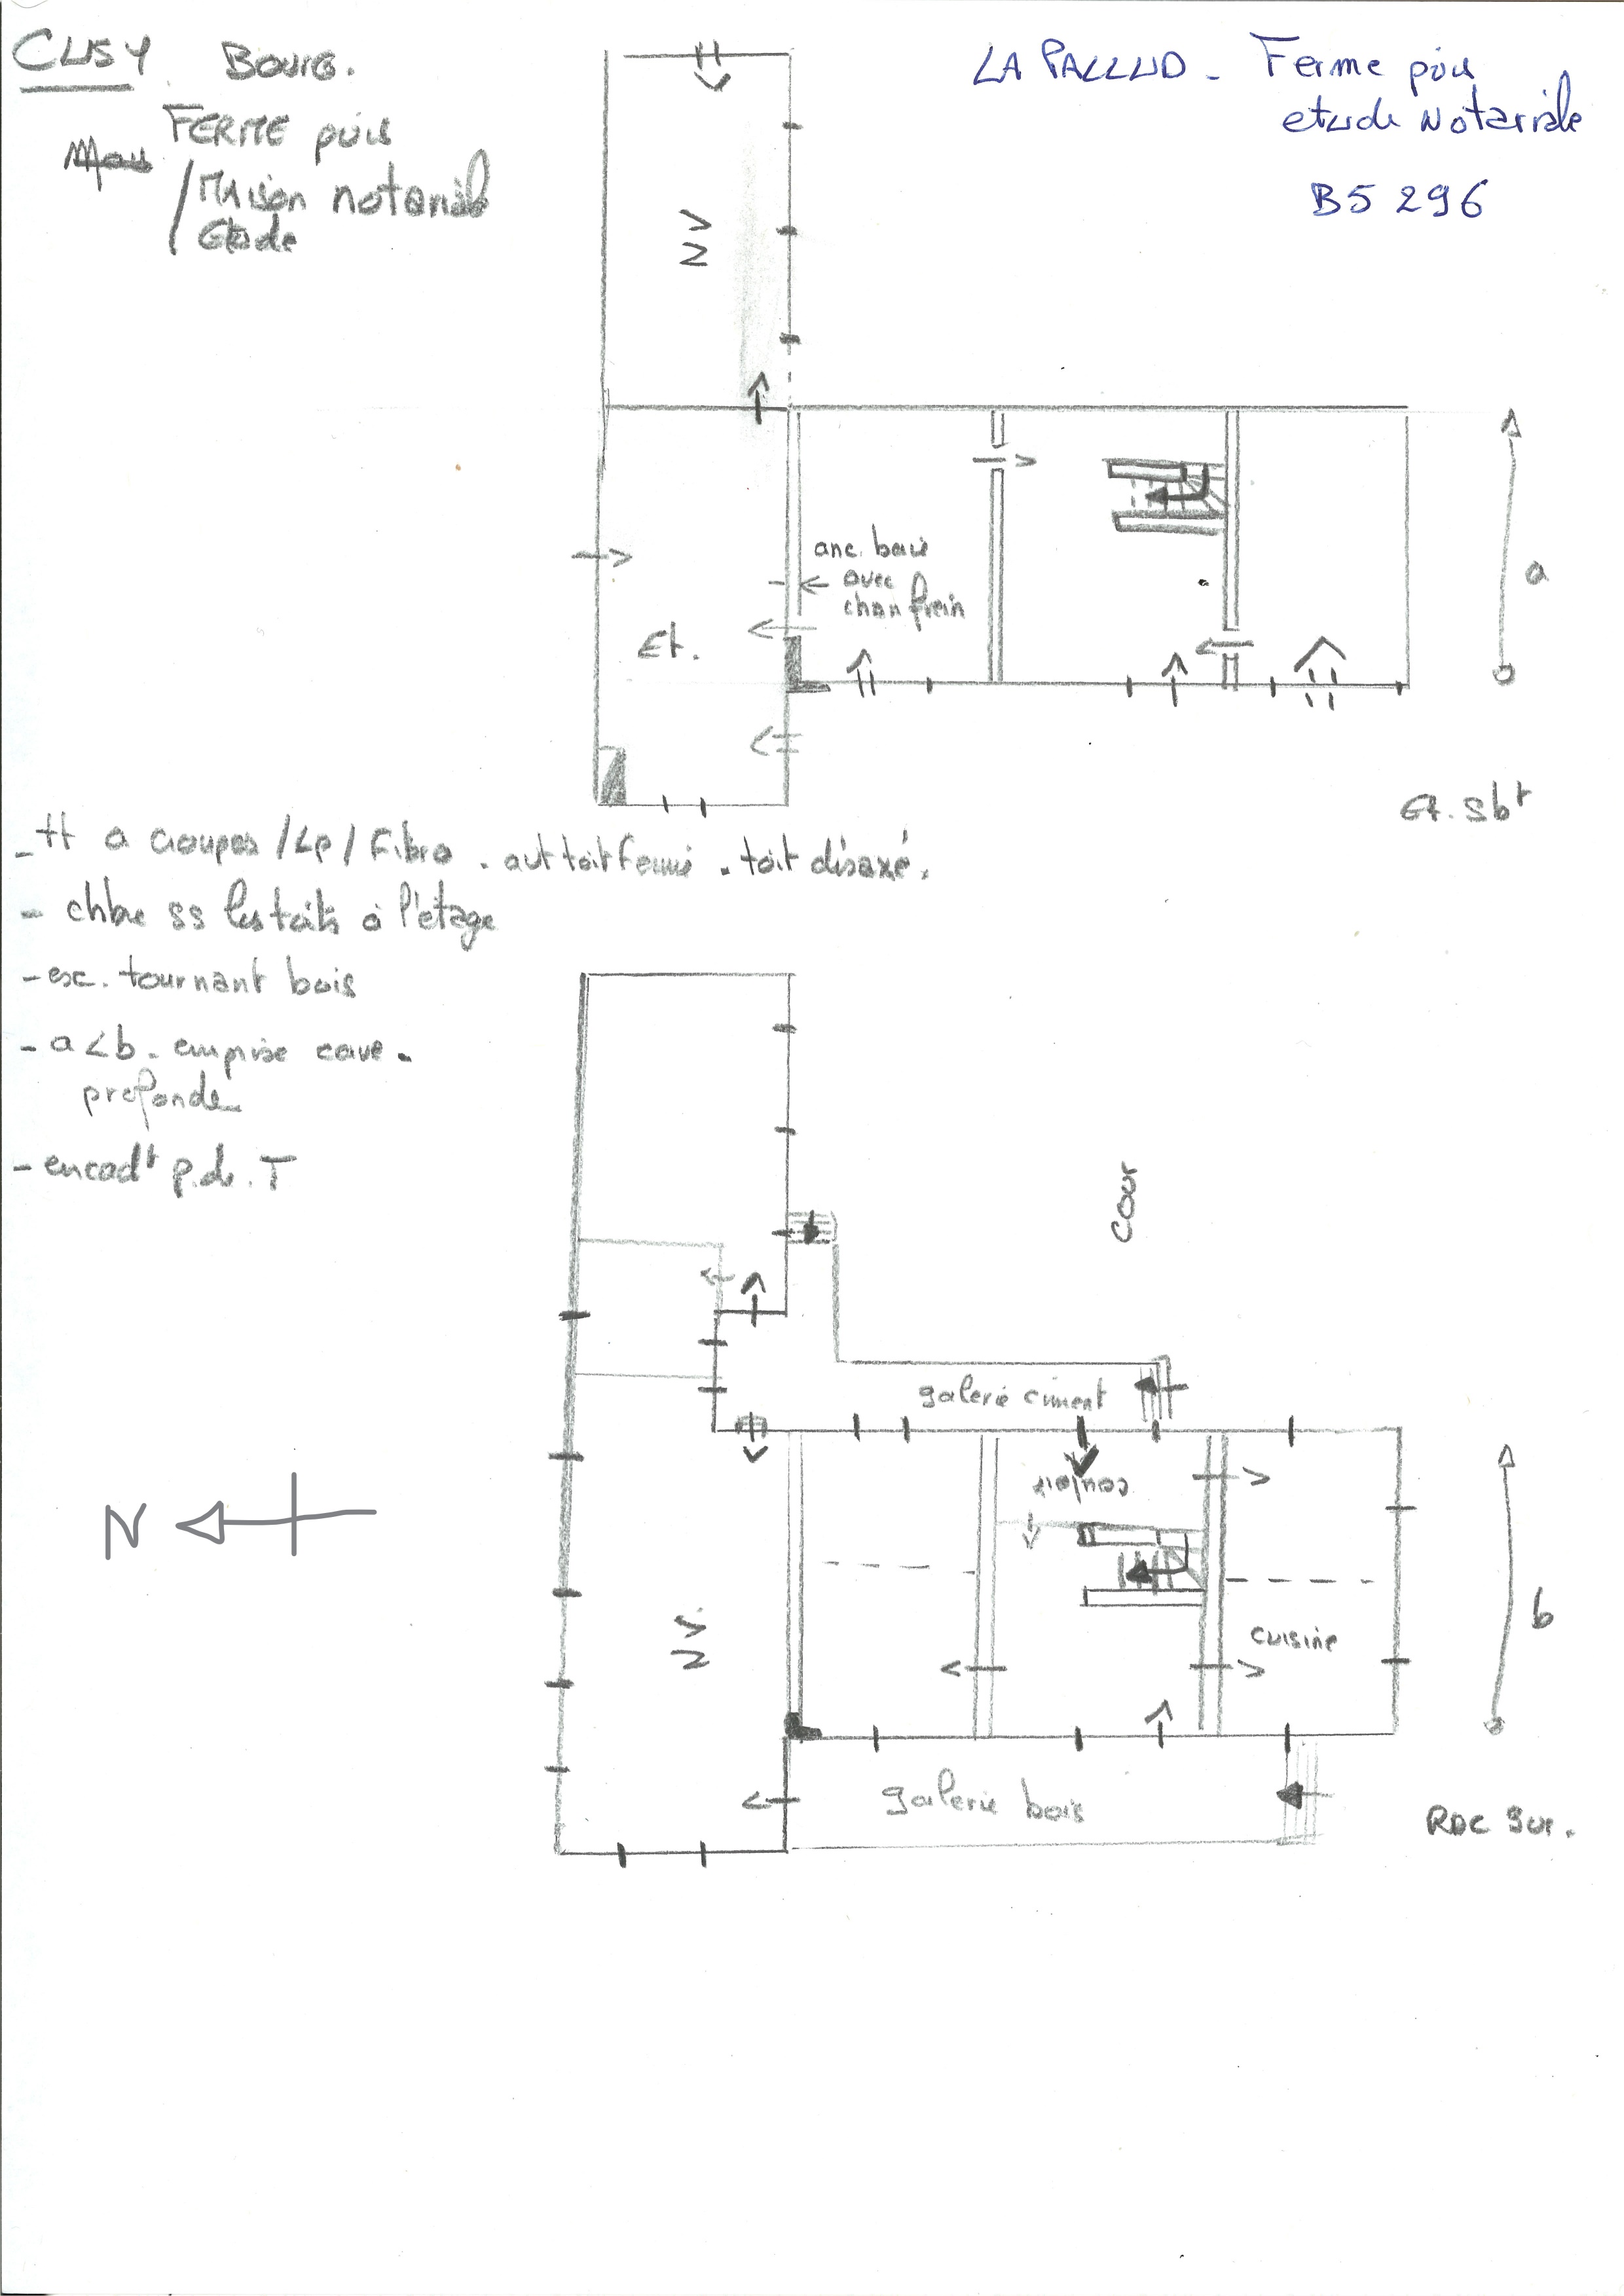 CUSY. BOURG.
FERME puis
/ Maison notariale
Etude
LA PALLUD - Ferme puis
etude Notariale
B5 296
anc. baie
avec
chanfrein
Et.
a
Et. Sbt
- tt a croupes / Lp / Fibro . avt toit fermé . toit désaxé.
- chbre ss les toits à l'étage
- esc. tournant bois
- a < b . emprise cave .
profonde
- encadt p. de. T
Cour
galerie ciment
couloir
N
b
cuisine
galerie bois
RDC Sur.